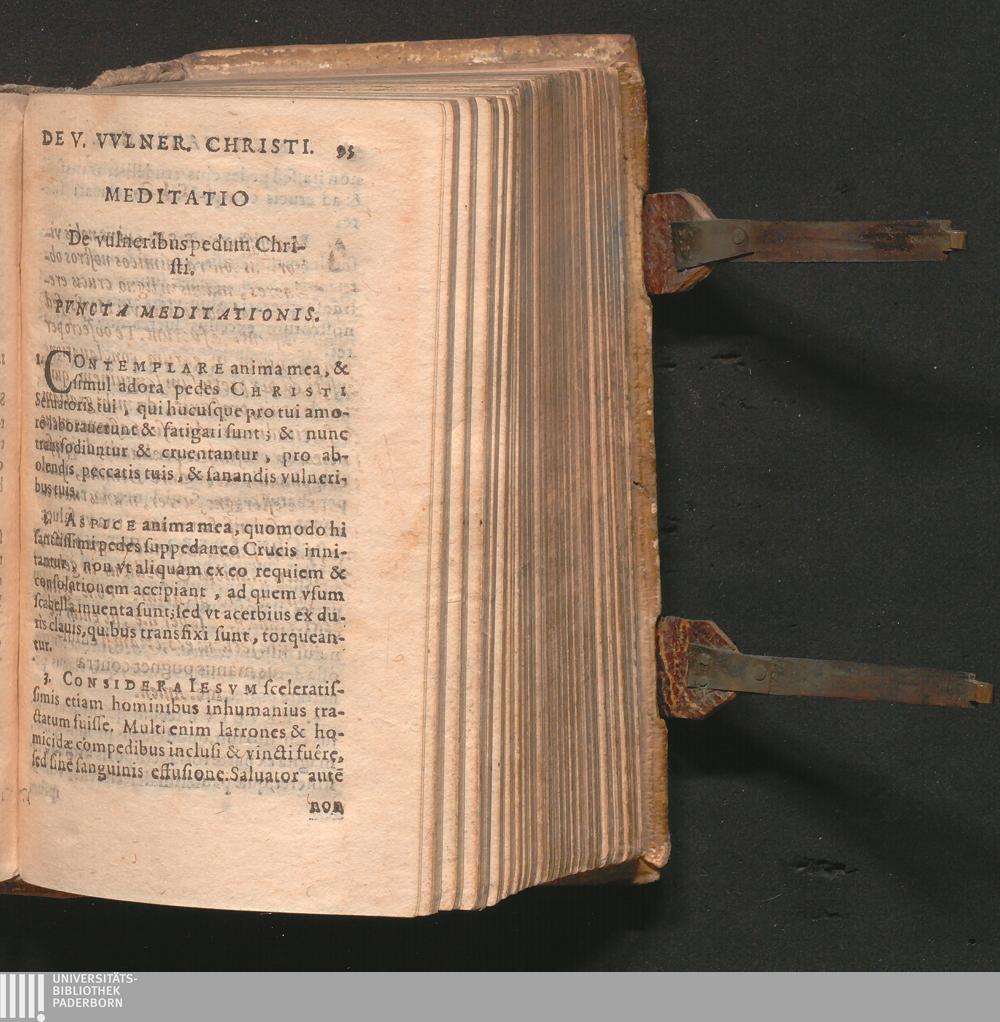 DE V. VVLNER. CHRISTI. 95
MEDITATIO
De vulneribus pedum Chri-
sti.
PVNCTA MEDITATIONIS.
1. CONTEMPLARE anima mea, &
simul adora pedes CHRISTI
Seruatoris tui, qui hucusque pro tui amo-
re laborauerunt & fatigati sunt; & nunc
transfodiuntur & cruentantur, pro ab-
olendis peccatis tuis, & sanandis vulneri-
bus tuis.
2. ASPICE anima mea, quomodo hi
sanctissimi pedes suppedaneo Crucis inni-
tantur, non vt aliquam ex eo requiem &
consolationem accipiant, ad quem vsum
scabella inuenta sunt; sed vt acerbius ex du-
ris clauis, quibus transfixi sunt, torquean-
tur.
3. CONSIDERA IESVM sceleratis-
simis etiam hominibus inhumanius tra-
ctatum fuisse. Multi enim latrones & ho-
micidæ compedibus inclusi & vincti fuêre,
sed sine sanguinis effusione. Saluator autē
non
UNIVERSITÄTS-
BIBLIOTHEK
PADERBORN